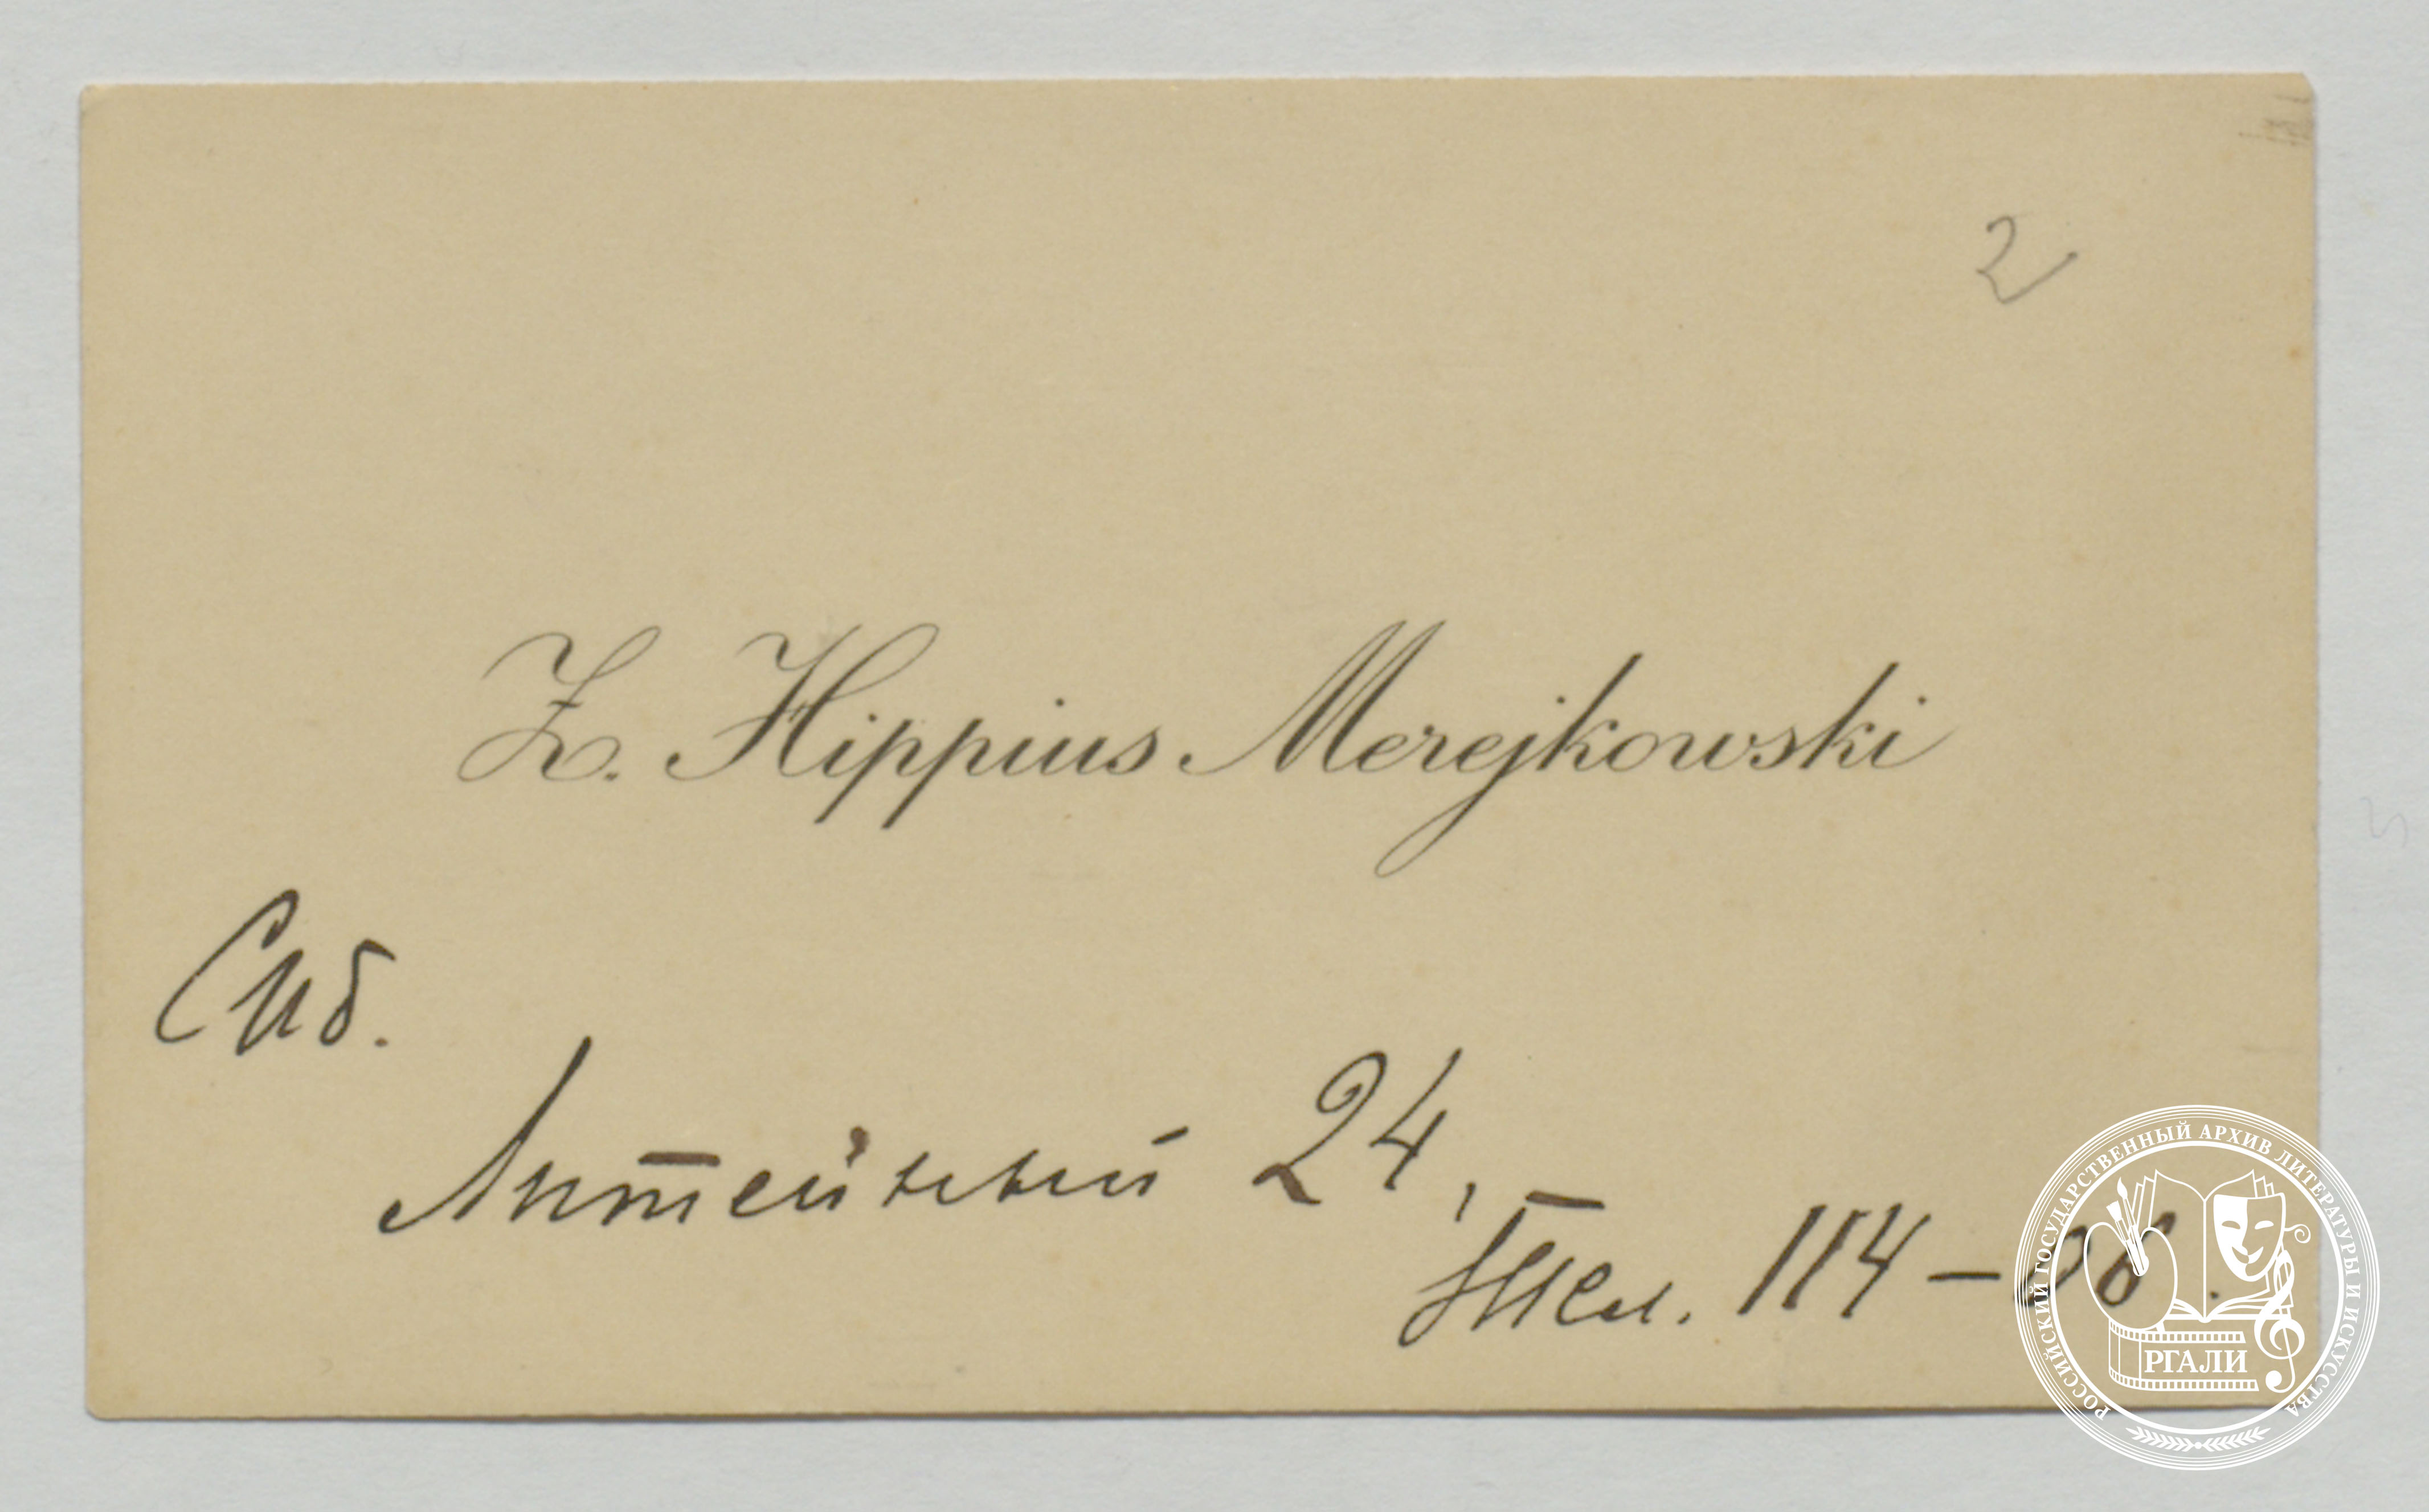 2
Z. Hippius Merejkowski
Спб.
Литейный 24,
Тел. 114–08.
РОССИЙСКИЙ ГОСУДАРСТВЕННЫЙ АРХИВ ЛИТЕРАТУРЫ И ИСКУССТВА
РГАЛИ